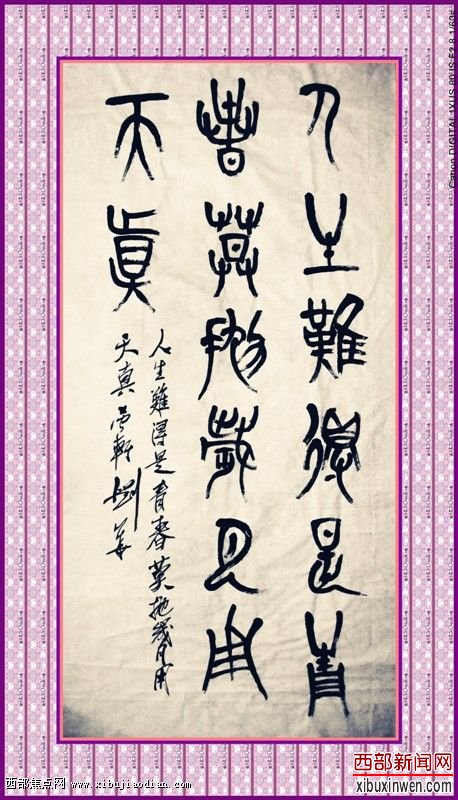 人生難得是青
春莫拋歲月用
天真
人生難得是青春莫拋歲月用
天真 軒
Canon DIGITAL IXUS 80 IS F2.8 1/60s
西部焦点网 www.xibujiaodian.com
西部新闻网
xibuxinwen.com